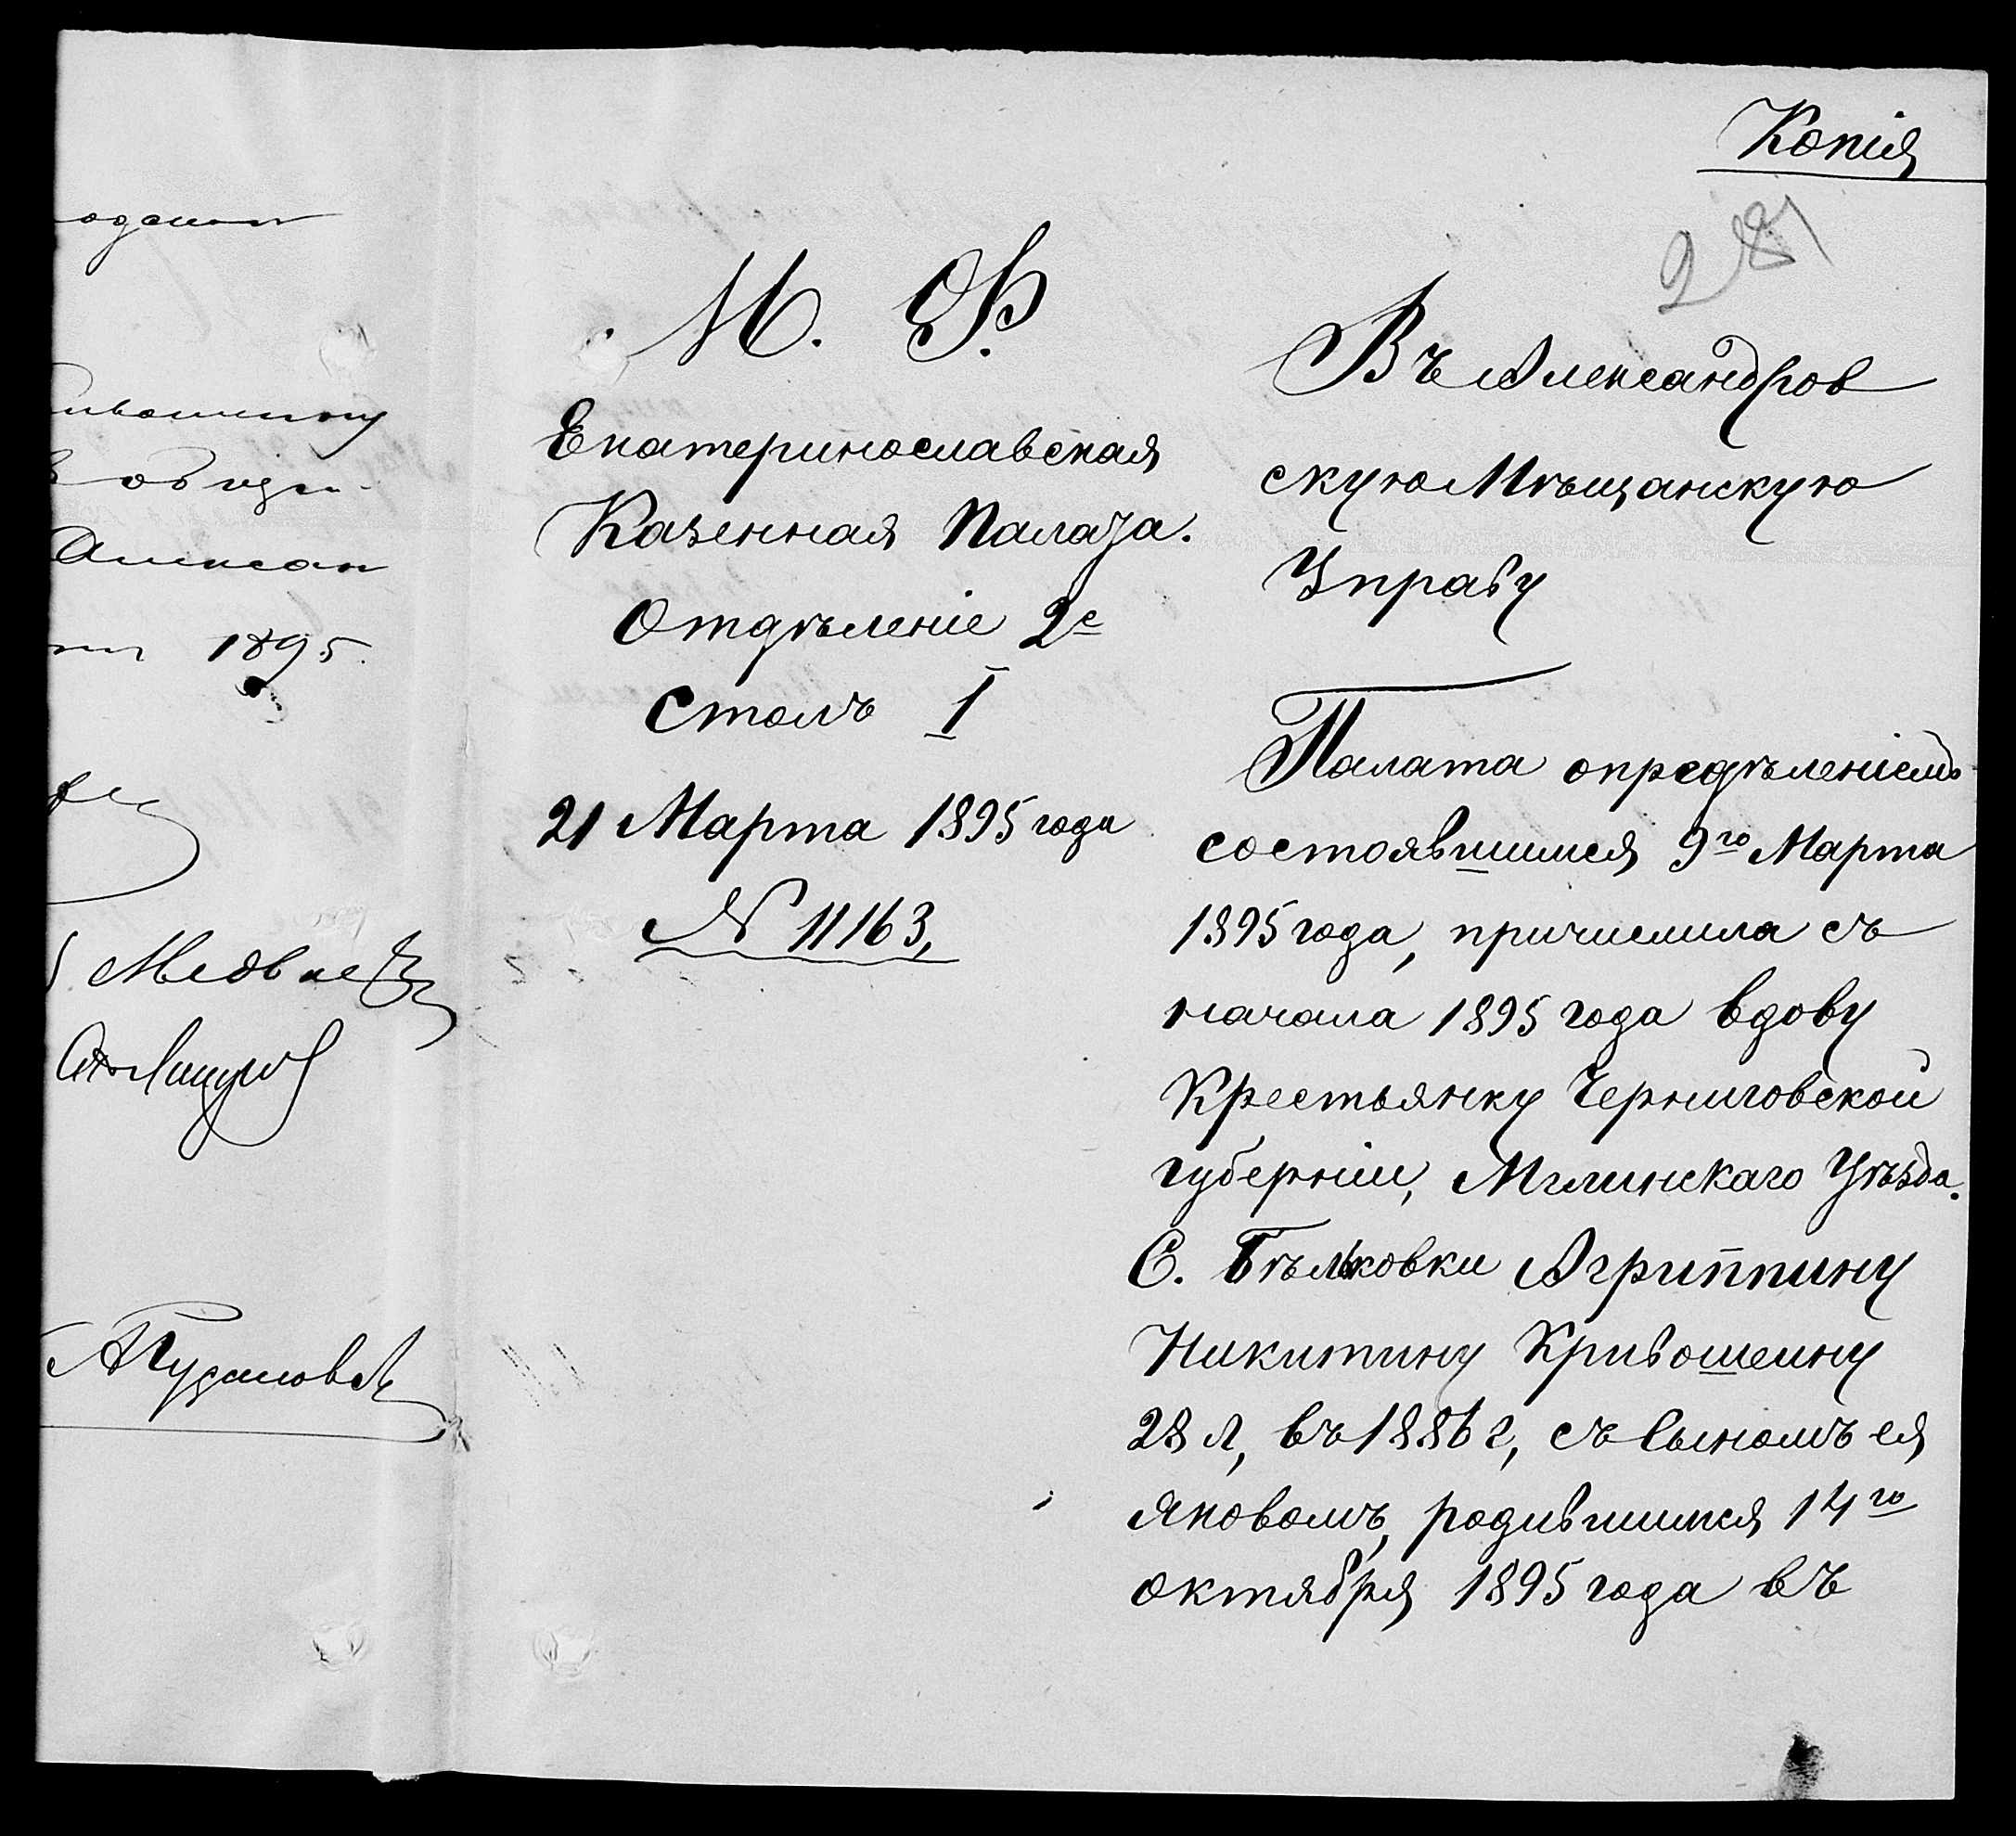 1895.
Копія
281
М. Ф.
Екатеринославская
Казенная Палата.
Отдѣленіе 2е
Столъ 1
21 Марта 1895 года
№ 11163,
Въ Александров
скую Мѣщанскую
Управу
Палата опредѣленіемъ
состоявшимся 9го Марта
1895 года, причислила съ
начала 1895 года вдову
Крестьянку Черниговской
губерніи, Мглинскаго Уѣзда.
С. Бѣльковки Агриппину
Никитину Кривошеину
28 л, въ 1886 г, съ Сыномъ ея
Яковомъ, родившимся 14го
октября 1895 года въ